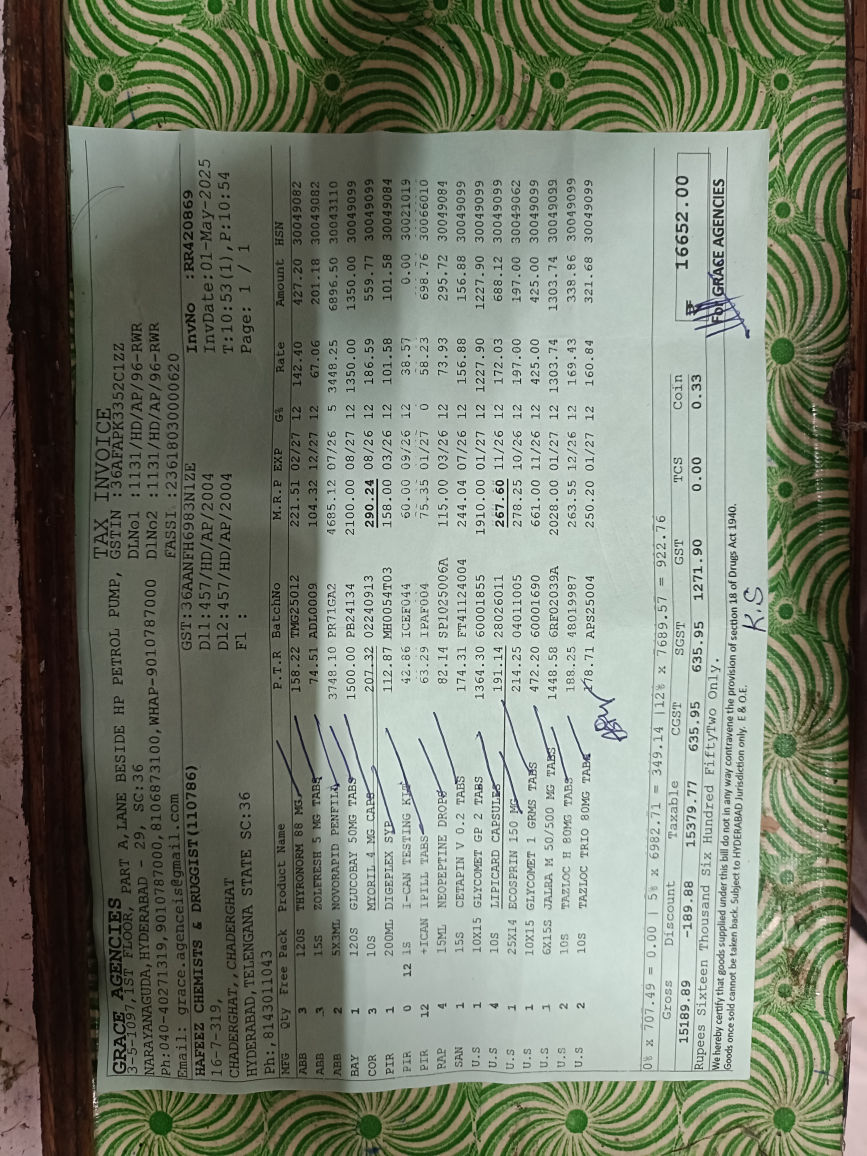 TAX INVOICE
GRACE AGENCIES
3-5-1097,1ST FLOOR, PART A,LANE BESIDE HP PETROL PUMP,
NARAYANAGUDA,HYDERABAD - 29, SC:36
Ph:040-40271319,9010787000,8106873100,WHAP-9010787000
Email: grace.agenceis@gmail.com
GSTIN :36AFAPK3352C1ZZ
DLNo1 :1131/HD/AP/96-RWR
DlNo2 :1131/HD/AP/96-RWR
FASSI :23618030000620
HAFEEZ CHEMISTS & DRUGGIST(110786)
16-7-319,
CHADERGHAT,, CHADERGHAT
HYDERABAD,TELENGANA STATE SC:36
Ph:,8143011043
GST:36AANFH6983N1ZE
Dl1:457/HD/AP/2004
Dl2:457/HD/AP/2004
Fl :
InvNo :RR420869
InvDate:01-May-2025
T:10:53(1),P:10:54
Page: 1 / 1
MFG Qty Free Pack Product Name P.T.R BatchNo M.R.P EXP G% Rate Amount HSN
ABB 3 120S THYRONORM 88 MG 158.22 TMG25012 221.51 02/27 12 142.40 427.20 30049082
ABB 3 15S ZOLFRESH 5 MG TABS 74.51 ADL0009 104.32 12/27 12 67.06 201.18 30049082
ABB 2 5X3ML NOVORAPID PENFILL 3748.10 PR71GA2 4685.12 07/26 5 3448.25 6896.50 30043110
BAY 1 120S GLUCOBAY 50MG TABS 1500.00 PB24134 2100.00 08/27 12 1350.00 1350.00 30049099
COR 3 10S MYORIL 4 MG CAPS 207.32 02240913 290.24 08/26 12 186.59 559.77 30049099
PIR 1 200ML DIGEPLEX SYP 112.87 MH0054T03 158.00 03/26 12 101.58 101.58 30049084
PIR 0 12 1S I-CAN TESTING KIT 42.86 ICEF044 60.00 09/26 12 38.57 0.00 30021019
PIR 12 +ICAN IPILL TABS 63.29 IPAF004 75.35 01/27 0 58.23 698.76 30066010
RAP 4 15ML NEOPEPTINE DROPS 82.14 SP1025006A 115.00 03/26 12 73.93 295.72 30049084
SAN 1 15S CETAPIN V 0.2 TABS 174.31 FT41124004 244.04 07/26 12 156.88 156.88 30049099
U.S 1 10X15 GLYCOMET GP 2 TABS 1364.30 60001855 1910.00 01/27 12 1227.90 1227.90 30049099
U.S 4 10S LIPICARD CAPSULES 191.14 28026011 267.60 11/26 12 172.03 688.12 30049099
U.S 1 25X14 ECOSPRIN 150 MG 214.25 04011005 278.25 10/26 12 197.00 197.00 30049062
U.S 1 10X15 GLYCOMET 1 GRMS TABS 472.20 60001690 661.00 11/26 12 425.00 425.00 30049099
U.S 1 6X15S JALRA M 50/500 MG TABS 1448.58 6RF02039A 2028.00 01/27 12 1303.74 1303.74 30049099
U.S 2 10S TAZLOC H 80MG TABS 188.25 48019987 263.55 12/26 12 169.43 338.86 30049099
U.S 2 10S TAZLOC TRIO 80MG TABS 178.71 APS25004 250.20 01/27 12 160.84 321.68 30049099
0% x 707.49 = 0.00 | 5% x 6982.71 = 349.14 |12% x 7689.57 = 922.76
Gross Discount Taxable CGST SGST GST TCS Coin
15189.89 -189.88 15379.77 635.95 635.95 1271.90 0.00 0.33
16652.00
Rupees Sixteen Thousand Six Hundred FiftyTwo Only.
We hereby certify that goods supplied under this bill do not in any way contravene the provision of section 18 of Drugs Act 1940.
Goods once sold cannot be taken back. Subject to HYDERABAD Jurisdiction only. E & O.E.
For GRACE AGENCIES
K.S